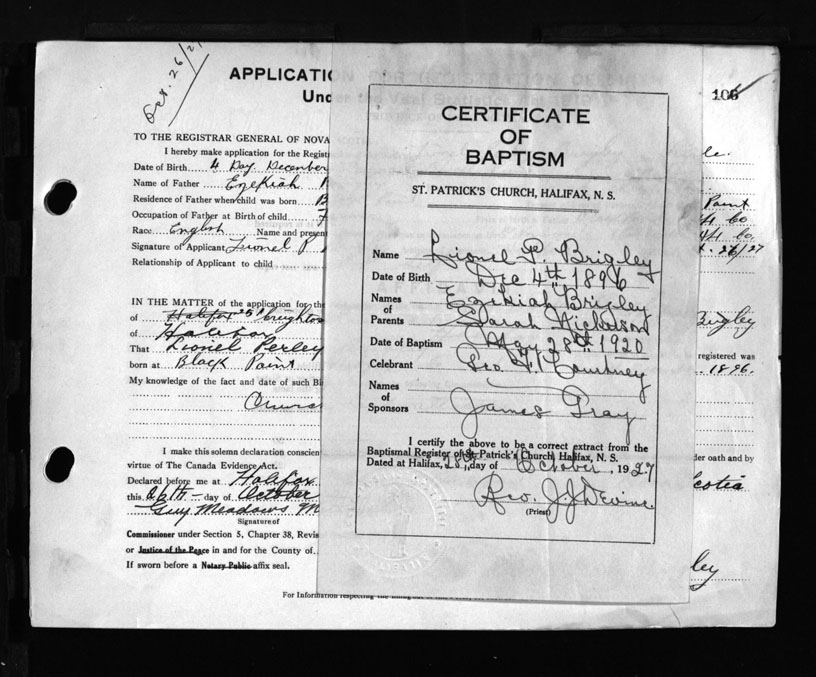 Oct. 26/27
APPLICATIO
Und
TO THE REGISTRAR GENERAL OF NOVA
I hereby make application for the Registr
Date of Birth 4 Day December
Name of Father Ezekiah
Residence of Father when child was born B
Occupation of Father at Birth of child F
Race English Name and present
Signature of Applicant Lionel P
Relationship of Applicant to child
IN THE MATTER of the application for the
of Halifax 25
of Halifax
That Lionel Perley
born at Black Point
My knowledge of the fact and date of such Bi
I make this solemn declaration conscien
virtue of The Canada Evidence Act.
Declared before me at Halifax
this 26th day of October
Guy Meadows M
Signature of
Commissioner under Section 5, Chapter 38, Revis
or Justice of the Peace in and for the County of
If sworn before a Notary Public affix seal.
For Information respecting the
CERTIFICATE
OF
BAPTISM
ST. PATRICK'S CHURCH, HALIFAX, N. S.
Name Lionel P Brigley
Date of Birth Dec 4th 1896
Names of Parents Ezekiah Brigley
Sarah Nicholson
Date of Baptism May 28th 1920
Celebrant Geo F. Courtney
Names of Sponsors James Gray
I certify the above to be a correct extract from the
Baptismal Register of St. Patrick's Church, Halifax, N. S.
Dated at Halifax, 28th day of October, 1927
Rev. J. J. Devine
(Priest)
106
le.
Point
. 26/27
Brigley
registered was
. 1896.
der oath and by
cotia
ley